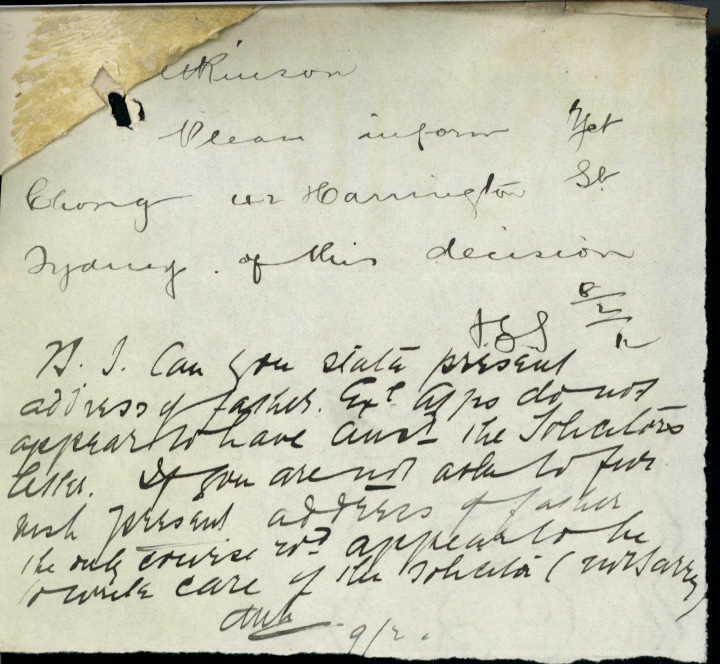 Atkinson
Please inform Yet
Chong 112 Harrington St
Sydney. of this decision
8/2/12
Can you state present
address of father. Extl Apps do not
appear to have ansd the Solicitors
letter. If you are not able to fur
nish present address of father
the only course wd appear to be
to write care of the Solicitor (
9/2.